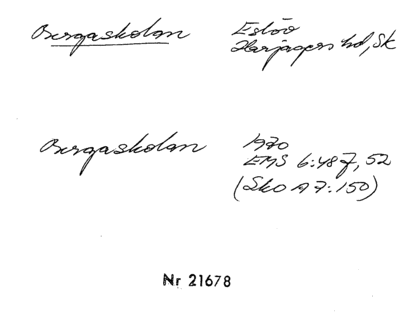 Bergaskolan Eslöv
Harjagers hd, Sk
Bergaskolan 1970
EMS 6:487, 52
(Sko A 7:150)
Nr 21678